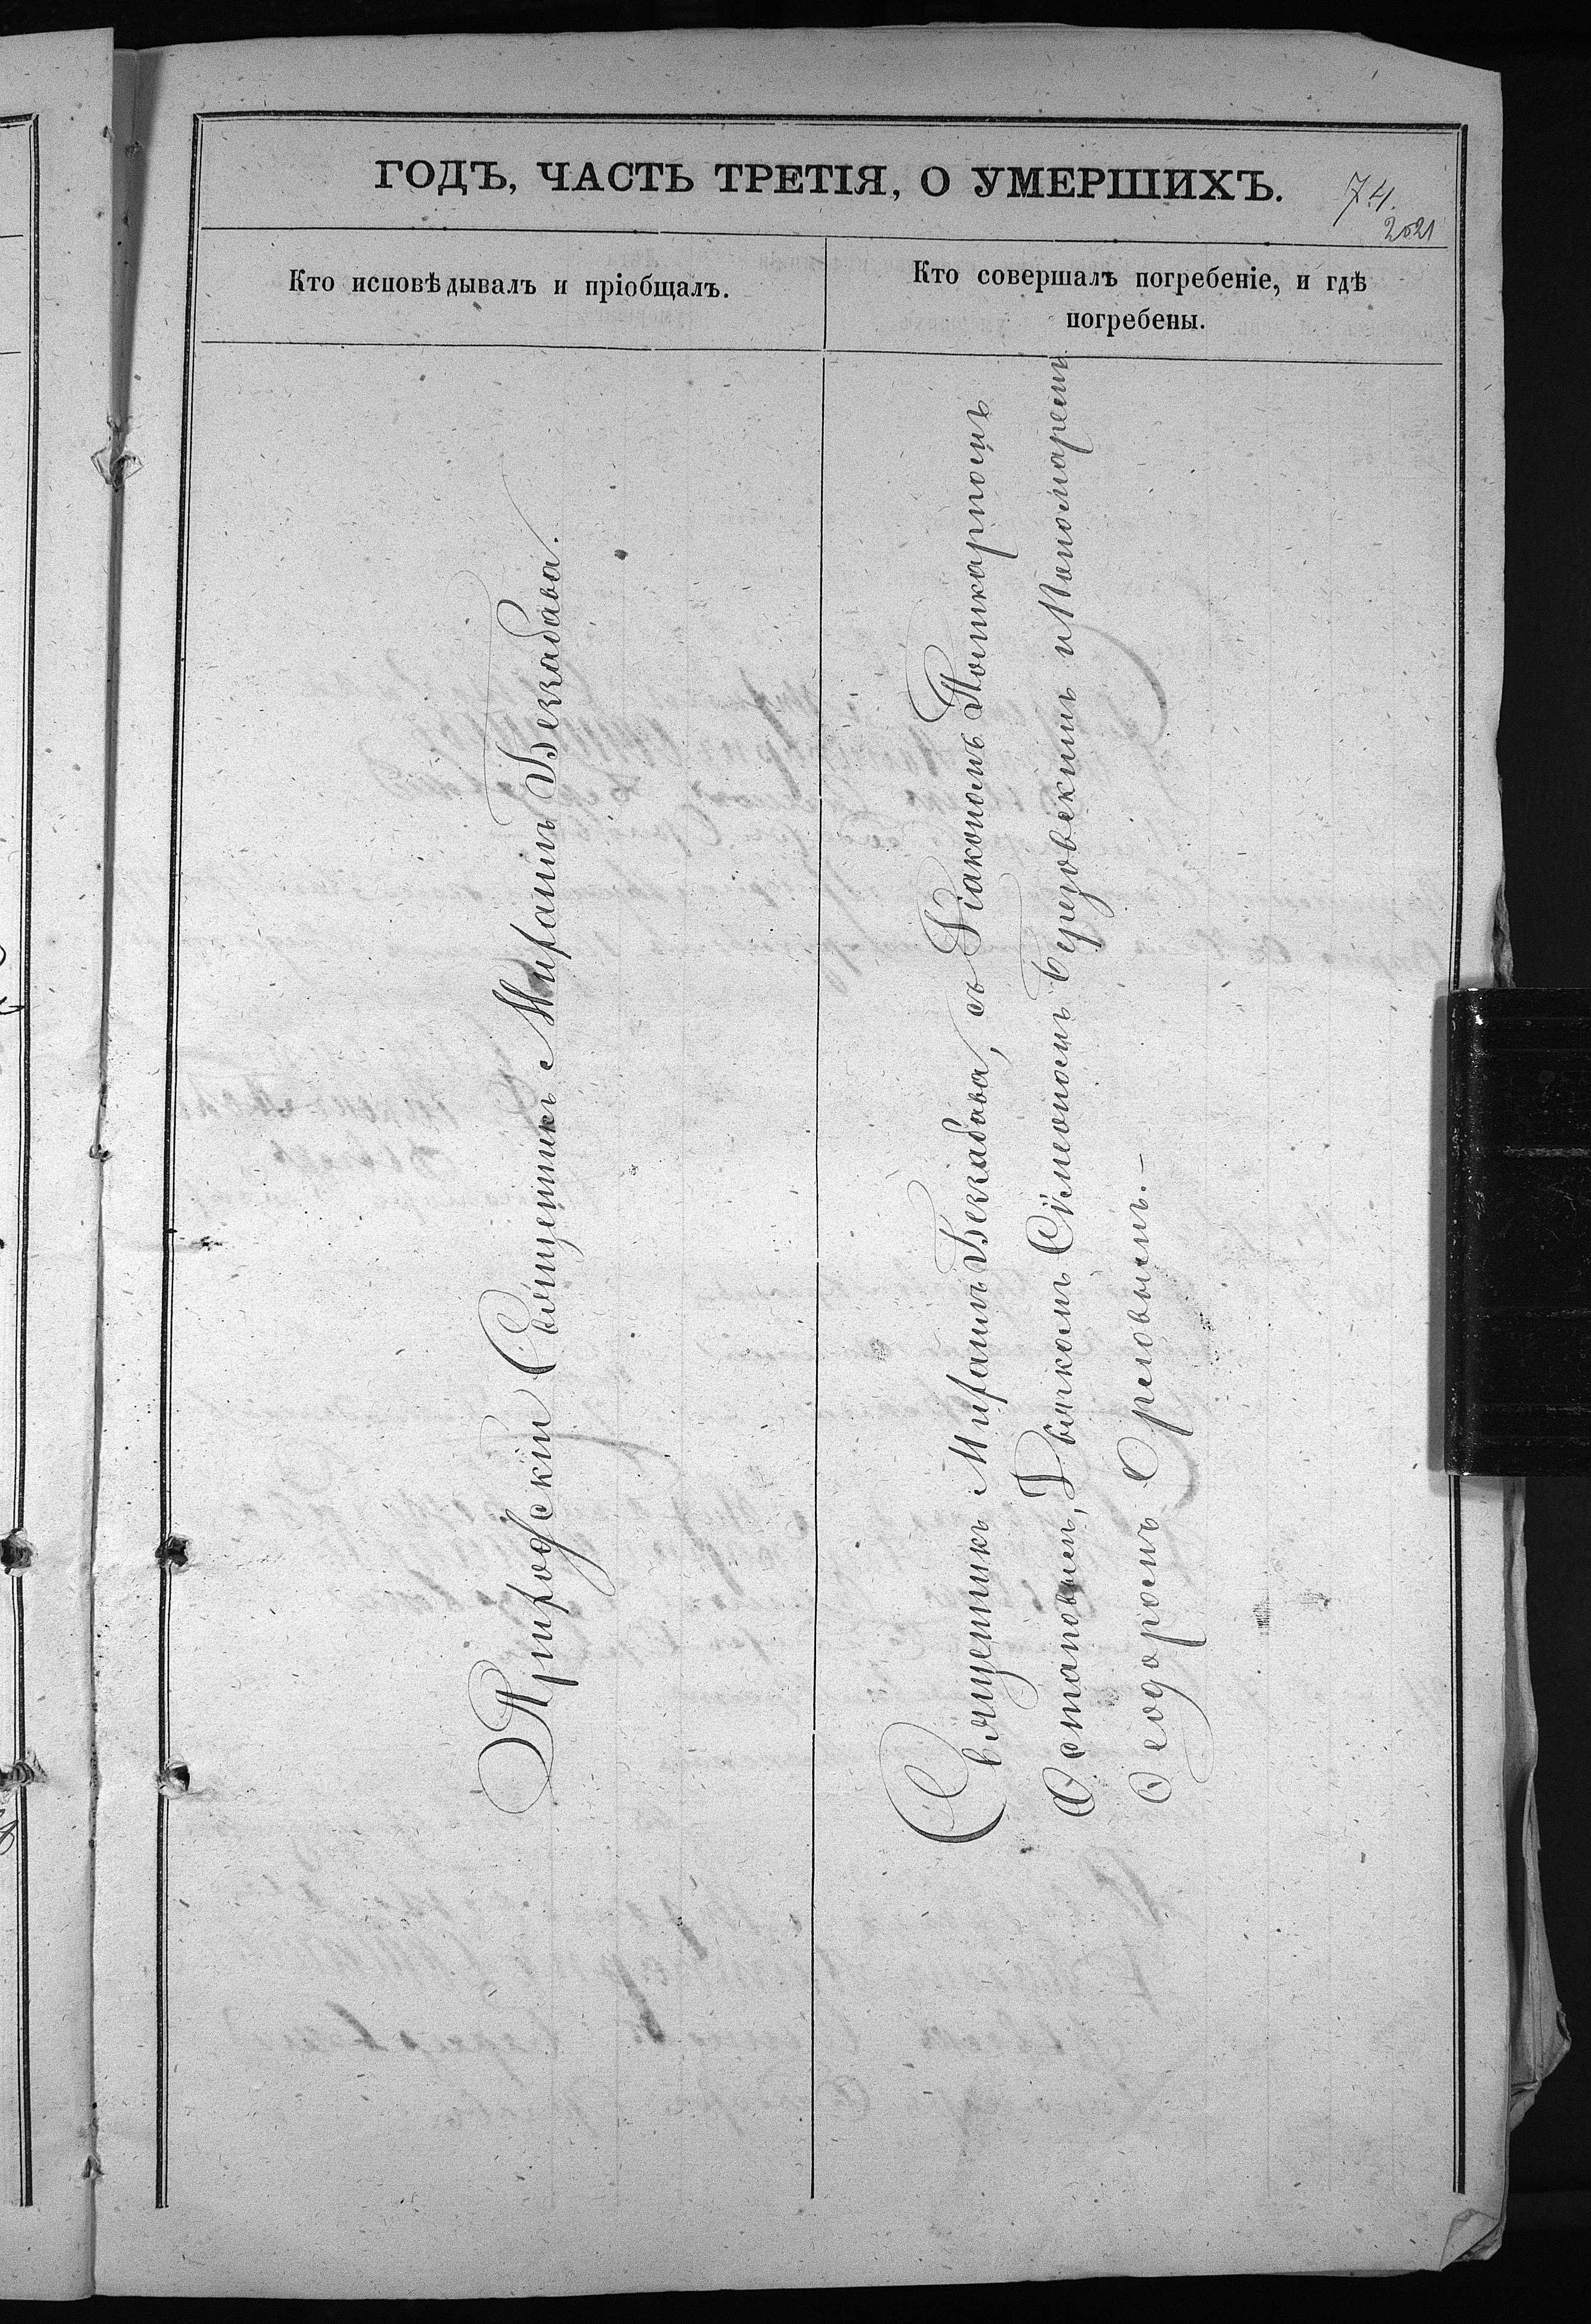 ГОДЪ, ЧАСТЬ ТРЕТІЯ, О УМЕРШИХЪ.
74.
2021
Кто исповѣдывалъ и пріобщалъ.
Кто совершалъ погребеніе, и гдѣ
погребены.
Приходскій Священникъ Михаилъ Беззабава.
Священникъ Михаилъ Беззабава, съ Діакономъ Поликарпомъ
Остаповымъ, Дьячкомъ Сѵмеономъ Березовскимъ и Пономаремъ
Ѳеодоромъ Ореловымъ.—